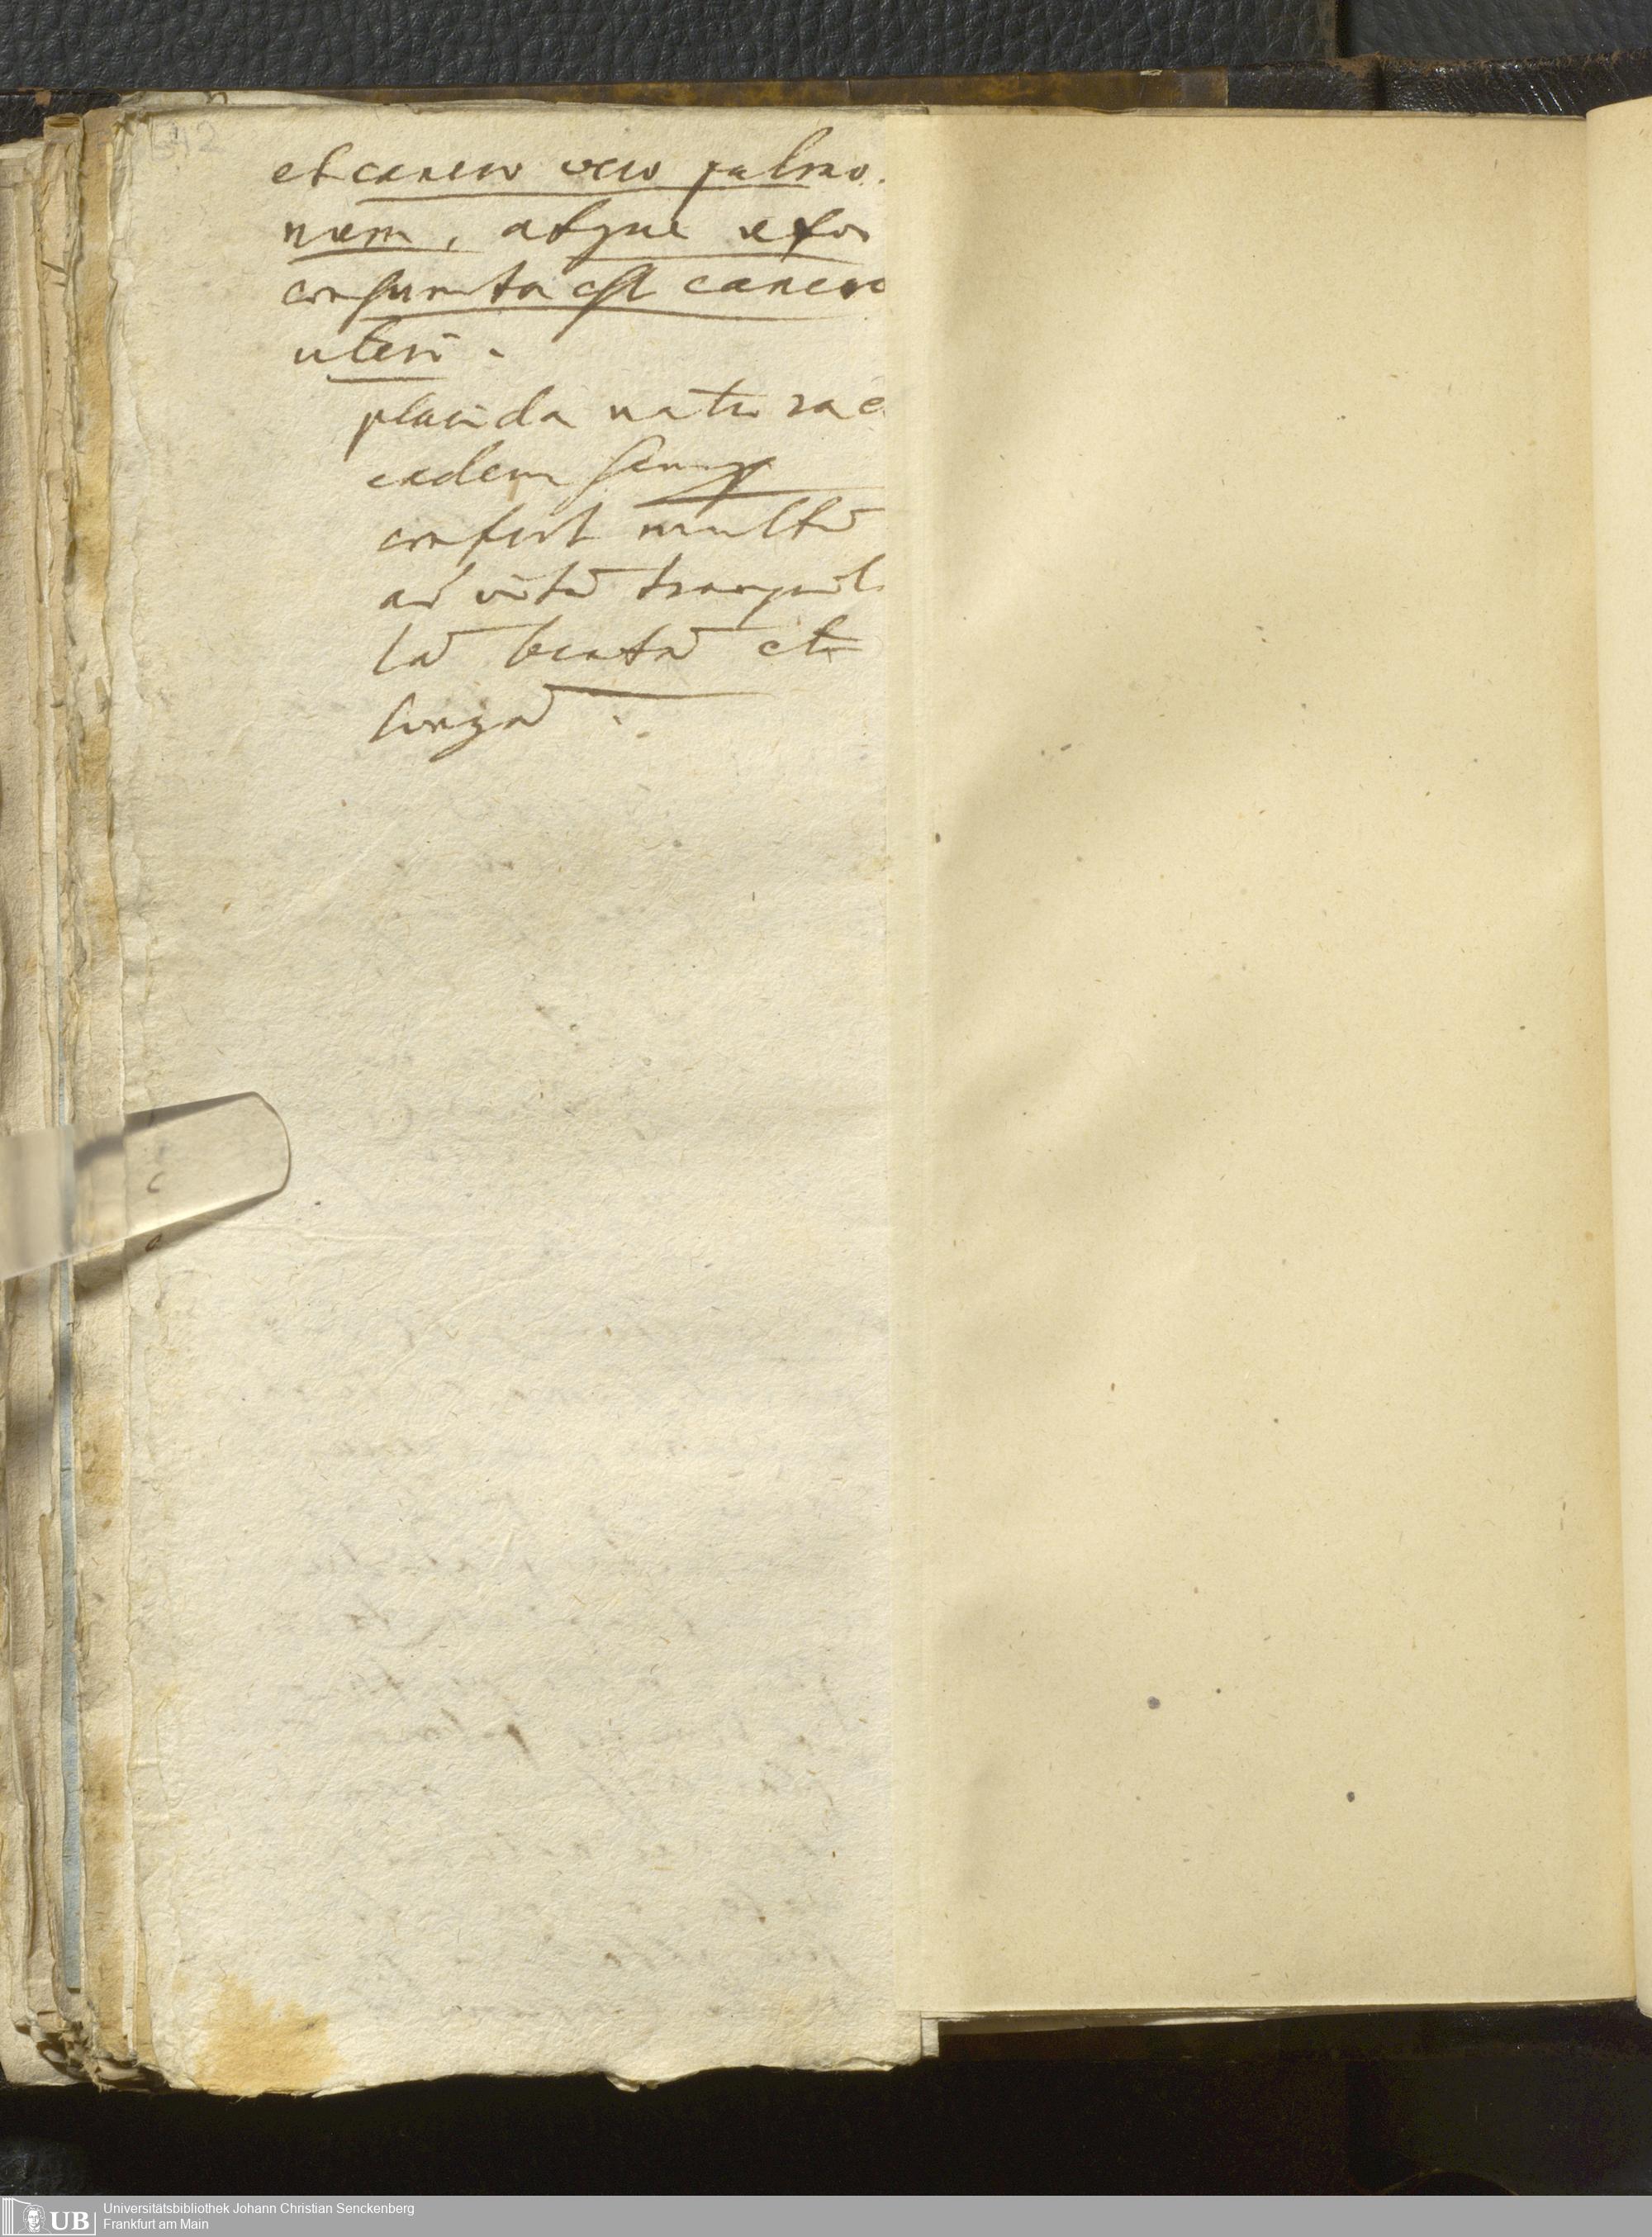 542
et cancro vero pulmo.
num, atque uxor
consumta est cancro
uteri.
placida natura e
eadem semp
confert multū
ad vitā tranquil
lā beatā et
longā.
UB
Universitätsbibliothek Johann Christian Senckenberg
Frankfurt am Main